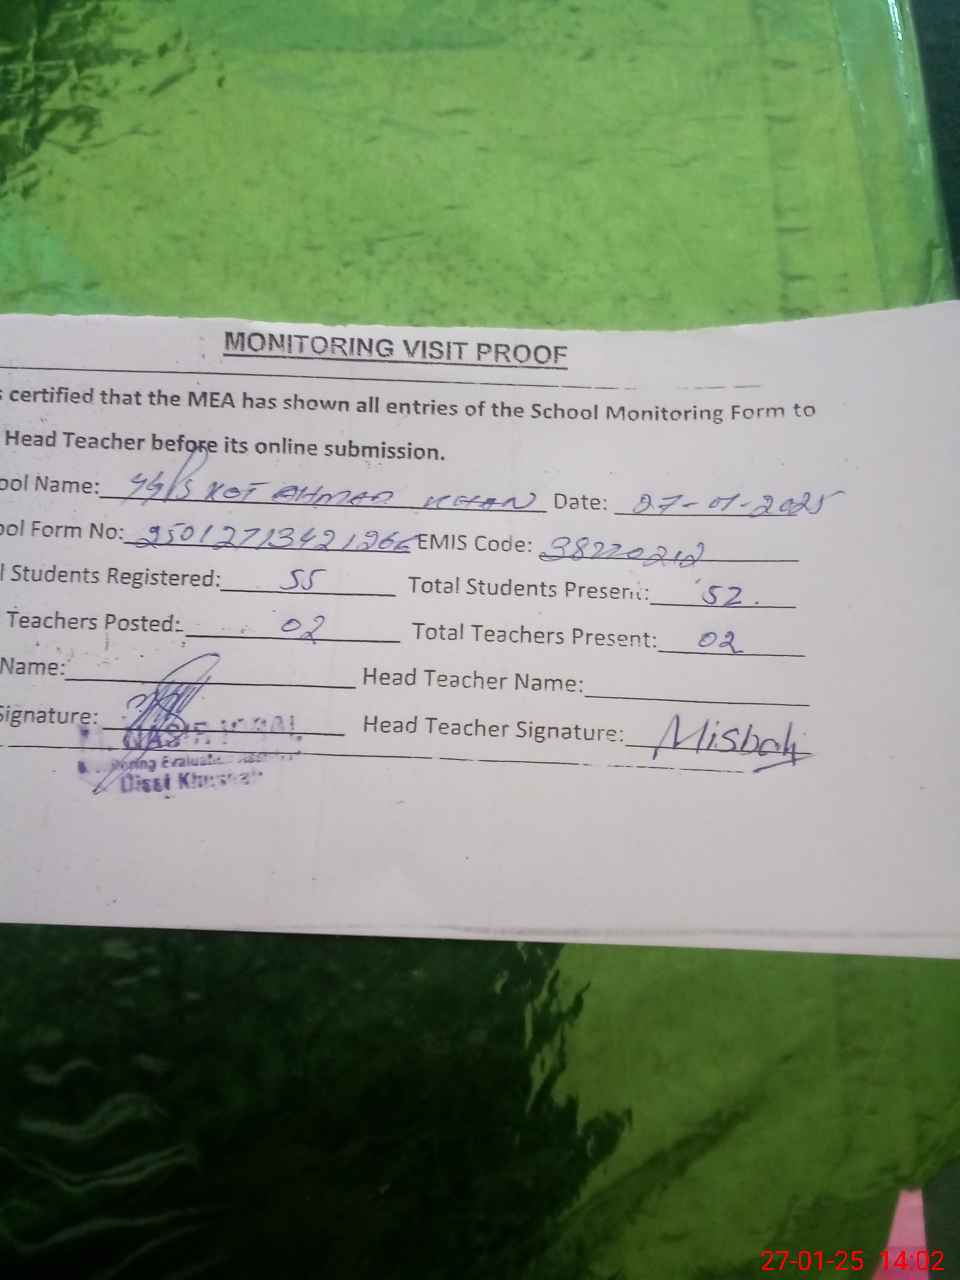 MONITORING VISIT PROOF
s certified that the MEA has shown all entries of the School Monitoring Form to
Head Teacher before its online submission.
ool Name: KOT AHMAD KHAN Date: 27-01-2025
ool Form No: EMIS Code: 38220212
l Students Registered: 55 Total Students Present: 52.
Teachers Posted: 02 Total Teachers Present: 02
Name: Head Teacher Name:
Signature: Head Teacher Signature: Misbah
Disst
27-01-25 14:02